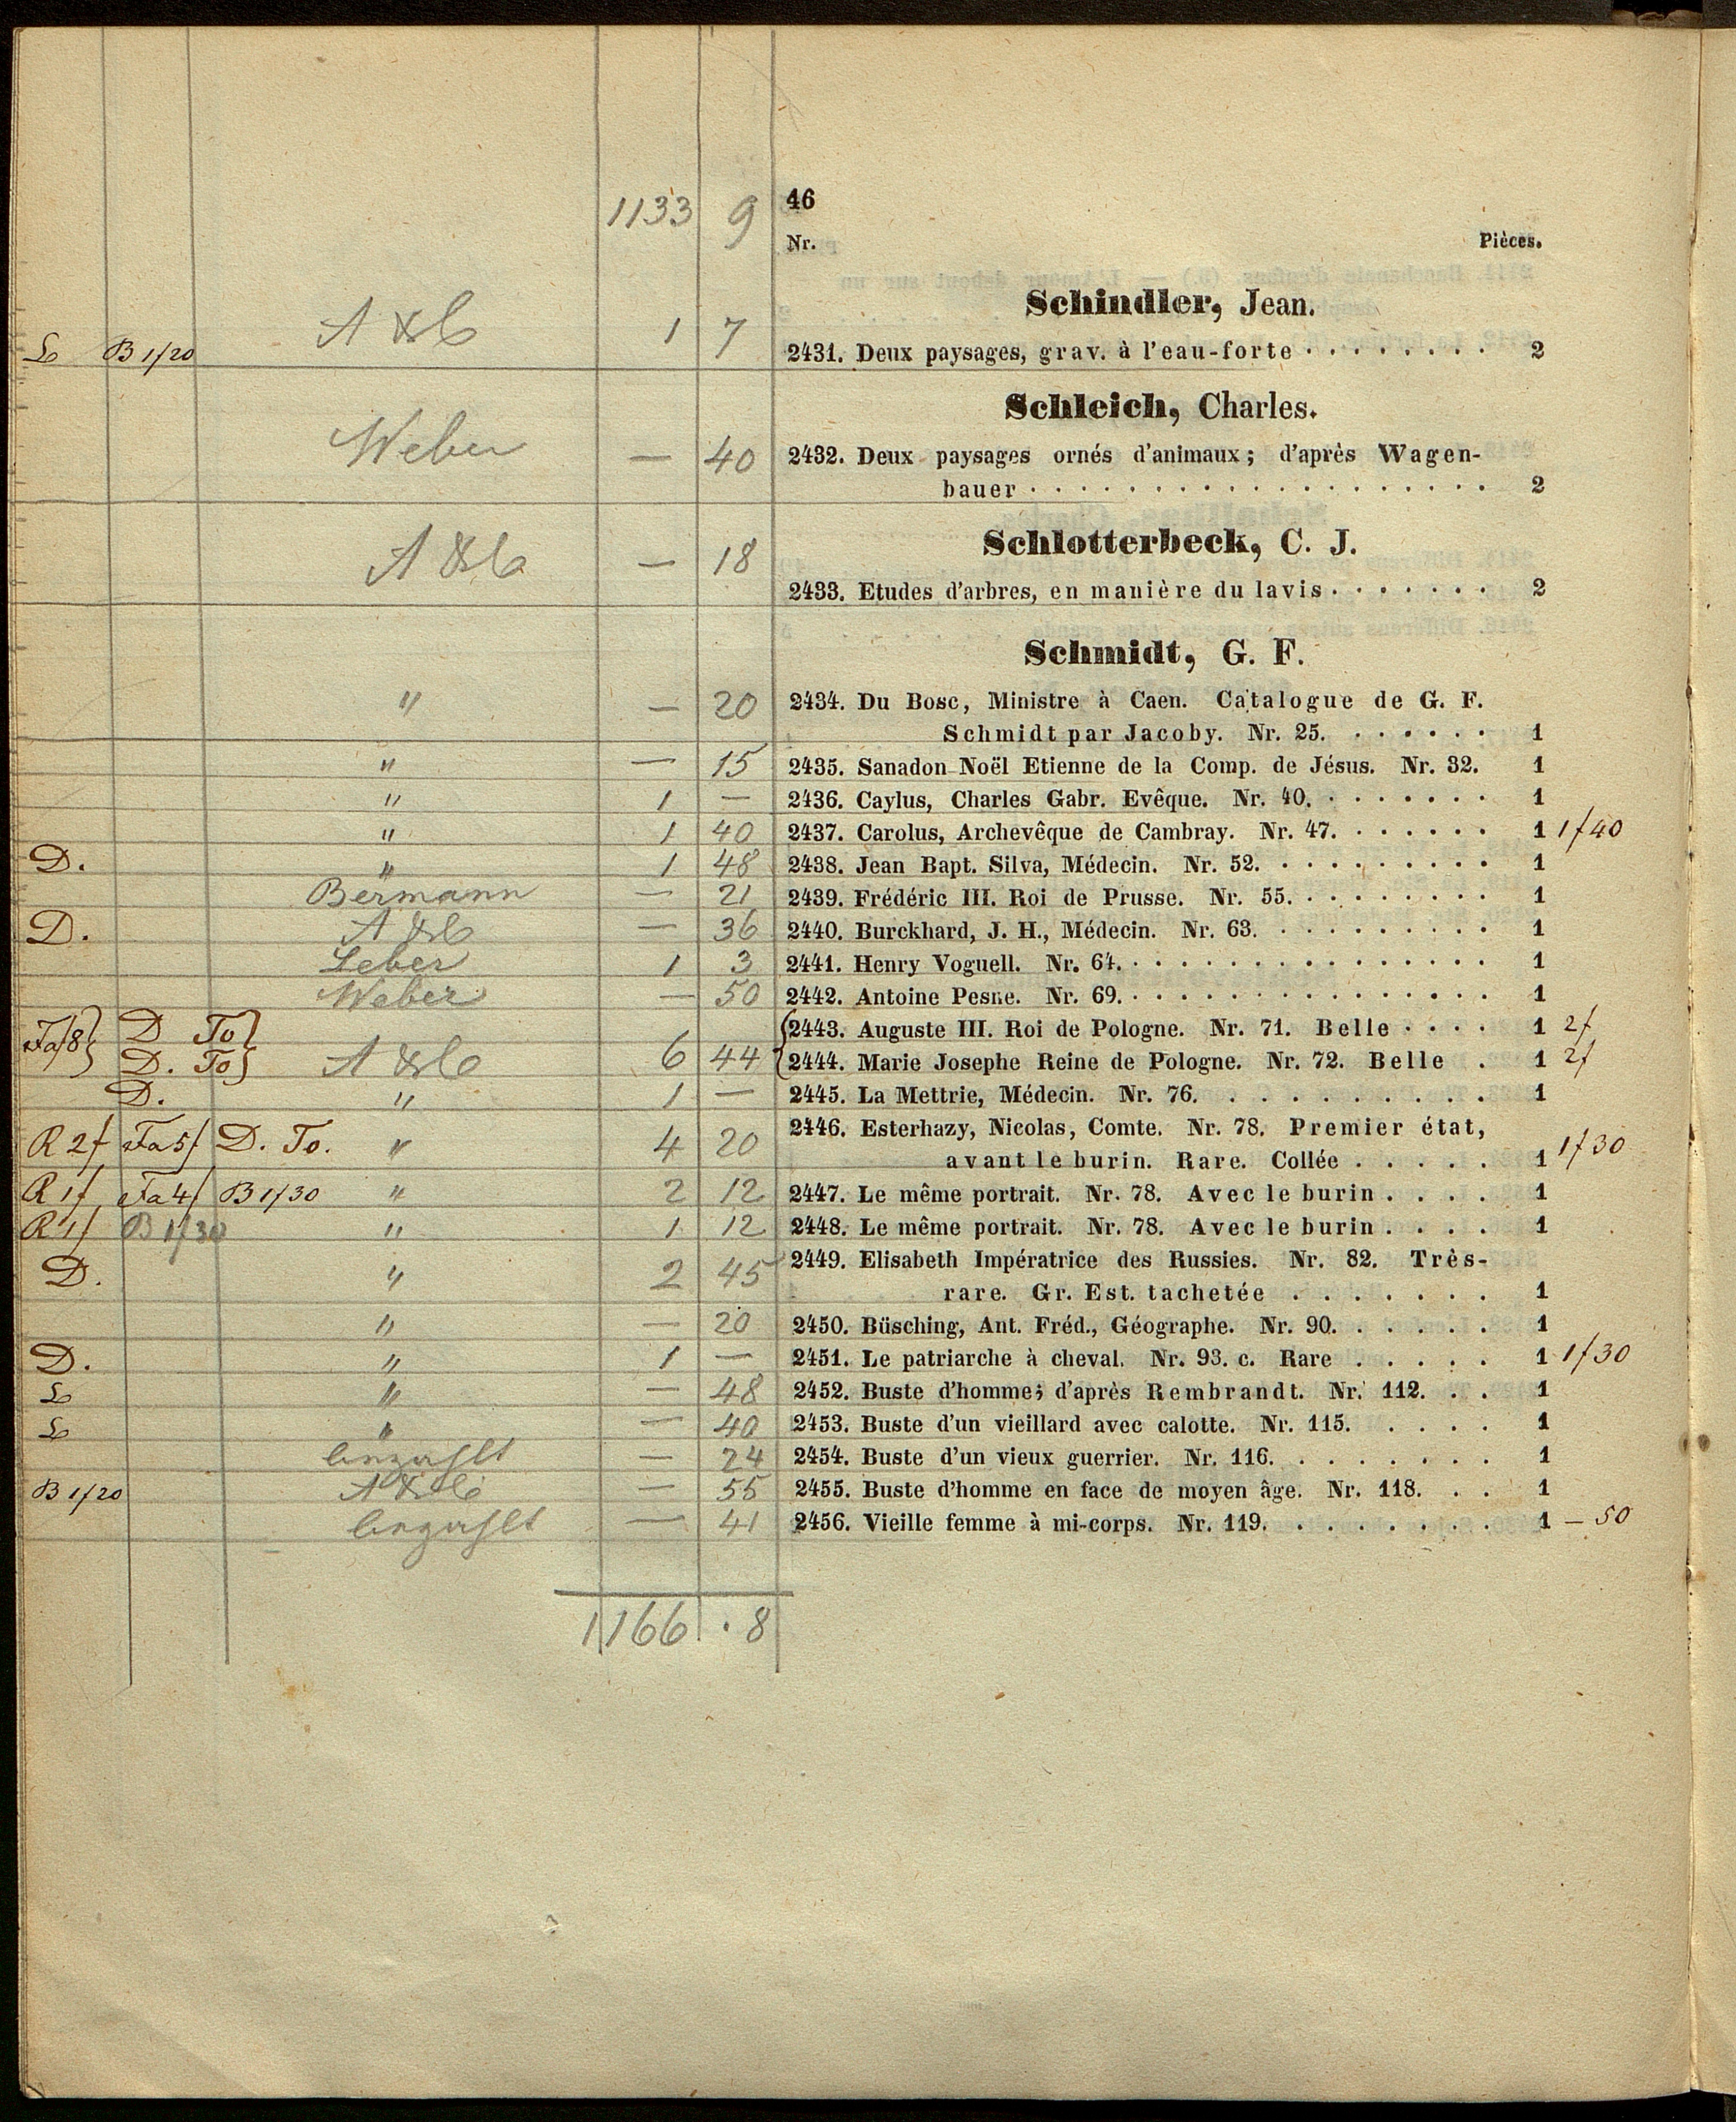 1133 9 46
Nr. Pièces.
Schindler, Jean.
B 1f20 1 7 2431. Deux paysages, grav. à l'eau-forte 2
Schleich, Charles.
Weber — 40 2432. Deux paysages ornés d'animaux; d'après Wagen-
bauer 2
Schlotterbeck, C. J.
— 18
2433. Etudes d'arbres, en manière du lavis 2
Schmidt, G. F.
" — 20 2434. Du Bosc, Ministre à Caen. Catalogue de G. F.
Schmidt par Jacoby. Nr. 25. 1
" — 15 2435. Sanadon Noël Etienne de la Comp. de Jésus. Nr. 32. 1
" 1 — 2436. Caylus, Charles Gabr. Evêque. Nr. 40. 1
" 1 40 2437. Carolus, Archevêque de Cambray. Nr. 47. 1 1f40
D. " 1 48 2438. Jean Bapt. Silva, Médecin. Nr. 52. 1
Bermann — 21 2439. Frédéric III. Roi de Prusse. Nr. 55. 1
D. — 36 2440. Burckhard, J. H., Médecin. Nr. 63. 1
Leber 1 3 2441. Henry Voguell. Nr. 64. 1
Weber — 50 2442. Antoine Pesne. Nr. 69. 1
Fa f8 } D To } { 2443. Auguste III. Roi de Pologne. Nr. 71. Belle 1 2f
D. To 6 44 2444. Marie Josephe Reine de Pologne. Nr. 72. Belle 1 2f
D. " 1 — 2445. La Mettrie, Médecin. Nr. 76. 1
R 2f Fa 5f D. To. " 4 20 2446. Esterhazy, Nicolas, Comte. Nr. 78. Premier état,
avant le burin. Rare. Collée 1 1f30
R 1f Fa 4f B 1f30 " 2 12 2447. Le même portrait. Nr. 78. Avec le burin 1
R 1f B 1f30 " 1 12 2448. Le même portrait. Nr. 78. Avec le burin 1
D. " 2 45 2449. Elisabeth Impératrice des Russies. Nr. 82. Très-
rare. Gr. Est. tachetée 1
" — 20 2450. Büsching, Ant. Fréd., Géographe. Nr. 90. 1
D. " 1 — 2451. Le patriarche à cheval. Nr. 93. c. Rare 1 1f30
" — 48 2452. Buste d'homme; d'après Rembrandt. Nr. 112. 1
" — 40 2453. Buste d'un vieillard avec calotte. Nr. 115. 1
— 24 2454. Buste d'un vieux guerrier. Nr. 116. 1
B 1f20 — 55 2455. Buste d'homme en face de moyen âge. Nr. 118. 1
— 41 2456. Vieille femme à mi-corps. Nr. 119. 1 — 50
1166 . 8